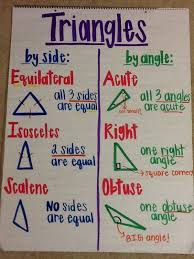 Triangles
by side:
Equilateral
all 3 sides
are equal
Isosceles
2 sides
are equal
Scalene
NO sides
are equal
by angle:
Acute
all 3 angles
are acute
Right
one right
angle
→ square corner!
Obtuse
one obtuse
angle
BIG angle!